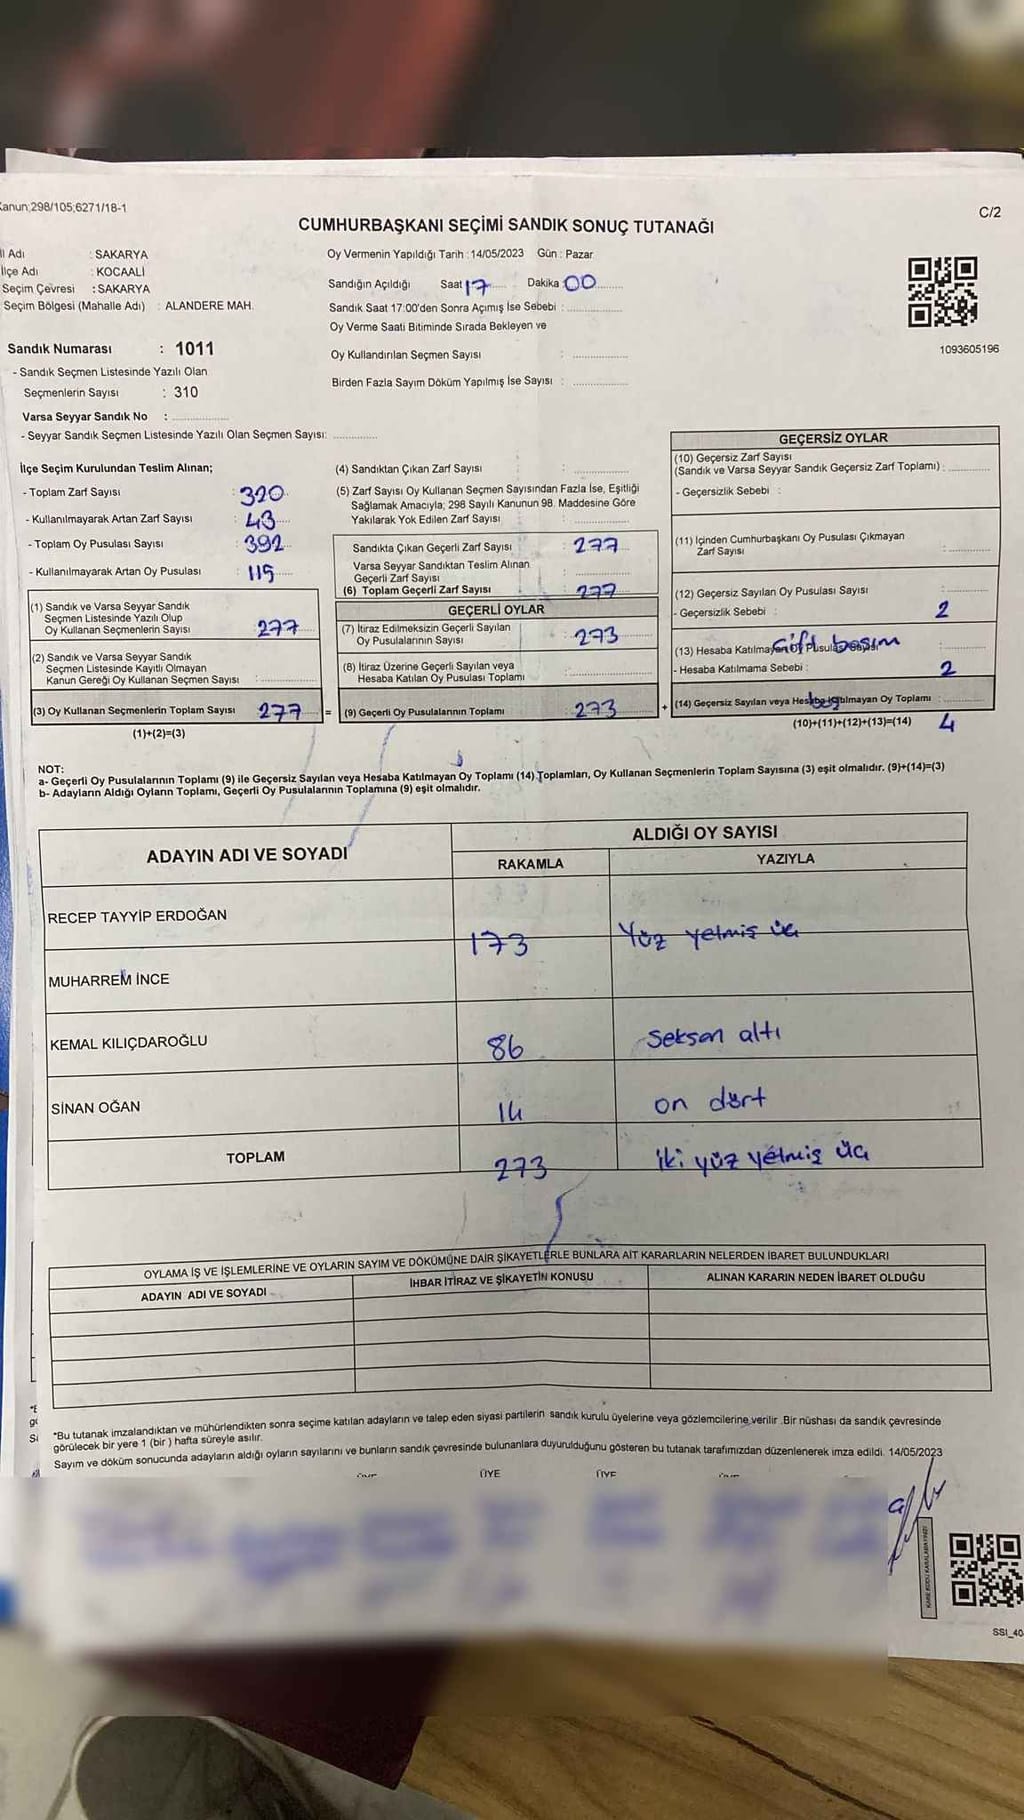 Kanun;298/105;6271/18-1
C/2
CUMHURBAŞKANI SEÇİMİ SANDIK SONUÇ TUTANAĞI
İl Adı : SAKARYA
İlçe Adı : KOCAALİ
Seçim Çevresi : SAKARYA
Seçim Bölgesi (Mahalle Adı) : ALANDERE MAH.
Oy Vermenin Yapıldığı Tarih : 14/05/2023 Gün : Pazar
Sandığın Açıldığı Saat 17 Dakika : 00
Sandık Saat 17:00'den Sonra Açımış İse Sebebi :
Oy Verme Saati Bitiminde Sırada Bekleyen ve
Oy Kullandırılan Seçmen Sayısı :
Birden Fazla Sayım Döküm Yapılmış İse Sayısı :
1093605196
Sandık Numarası : 1011
- Sandık Seçmen Listesinde Yazılı Olan
Seçmenlerin Sayısı : 310
Varsa Seyyar Sandık No :
- Seyyar Sandık Seçmen Listesinde Yazılı Olan Seçmen Sayısı:
İlçe Seçim Kurulundan Teslim Alınan;
- Toplam Zarf Sayısı : 320
- Kullanılmayarak Artan Zarf Sayısı : 43
- Toplam Oy Pusulası Sayısı : 392
- Kullanılmayarak Artan Oy Pusulası : 115
(1) Sandık ve Varsa Seyyar Sandık
Seçmen Listesinde Yazılı Olup
Oy Kullanan Seçmenlerin Sayısı : 277
(2) Sandık ve Varsa Seyyar Sandık
Seçmen Listesinde Kayıtlı Olmayan
Kanun Gereği Oy Kullanan Seçmen Sayısı :
(3) Oy Kullanan Seçmenlerin Toplam Sayısı : 277 =
(1)+(2)=(3)
(4) Sandıktan Çıkan Zarf Sayısı :
(5) Zarf Sayısı Oy Kullanan Seçmen Sayısından Fazla İse, Eşitliği
Sağlamak Amacıyla; 298 Sayılı Kanunun 98. Maddesine Göre
Yakılarak Yok Edilen Zarf Sayısı :
Sandıkta Çıkan Geçerli Zarf Sayısı : 277
Varsa Seyyar Sandıktan Teslim Alınan
Geçerli Zarf Sayısı :
(6) Toplam Geçerli Zarf Sayısı : 277
GEÇERLİ OYLAR
(7) İtiraz Edilmeksizin Geçerli Sayılan
Oy Pusulalarının Sayısı : 273
(8) İtiraz Üzerine Geçerli Sayılan veya
Hesaba Katılan Oy Pusulası Toplamı :
(9) Geçerli Oy Pusulalarının Toplamı : 273 +
GEÇERSİZ OYLAR
(10) Geçersiz Zarf Sayısı
(Sandık ve Varsa Seyyar Sandık Geçersiz Zarf Toplamı) :
- Geçersizlik Sebebi :
(11) İçinden Cumhurbaşkanı Oy Pusulası Çıkmayan
Zarf Sayısı :
(12) Geçersiz Sayılan Oy Pusulası Sayısı :
- Geçersizlik Sebebi : 2
(13) Hesaba Katılmayan Oy Pusulası Sayısı :
Çift basım
- Hesaba Katılmama Sebebi : 2
(14) Geçersiz Sayılan veya Hesaba Katılmayan Oy Toplamı :
(10)+(11)+(12)+(13)=(14) 4
NOT:
a- Geçerli Oy Pusulalarının Toplamı (9) ile Geçersiz Sayılan veya Hesaba Katılmayan Oy Toplamı (14) Toplamları, Oy Kullanan Seçmenlerin Toplam Sayısına (3) eşit olmalıdır. (9)+(14)=(3)
b- Adayların Aldığı Oyların Toplamı, Geçerli Oy Pusulalarının Toplamına (9) eşit olmalıdır.
ADAYIN ADI VE SOYADI
ALDIĞI OY SAYISI
RAKAMLA YAZIYLA
RECEP TAYYİP ERDOĞAN 173 Yüz yetmiş üç
MUHARREM İNCE
KEMAL KILIÇDAROĞLU 86 Seksen altı
SİNAN OĞAN 14 on dört
TOPLAM 273 iki yüz yetmiş üç
OYLAMA İŞ VE İŞLEMLERİNE VE OYLARIN SAYIM VE DÖKÜMÜNE DAİR ŞİKAYETLERLE BUNLARA AİT KARARLARIN NELERDEN İBARET BULUNDUKLARI
ADAYIN ADI VE SOYADI İHBAR İTİRAZ VE ŞİKAYETİN KONUSU ALINAN KARARIN NEDEN İBARET OLDUĞU
*Bu tutanak imzalandıktan ve mühürlendikten sonra seçime katılan adayların ve talep eden siyasi partilerin sandık kurulu üyelerine veya gözlemcilerine verilir .Bir nüshası da sandık çevresinde
görülecek bir yere 1 (bir ) hafta süreyle asılır.
Sayım ve döküm sonucunda adayların aldığı oyların sayılarını ve bunların sandık çevresinde bulunanlara duyurulduğunu gösteren bu tutanak tarafımızdan düzenlenerek imza edildi. 14/05/2023
ÜYE ÜYE
SSI_40